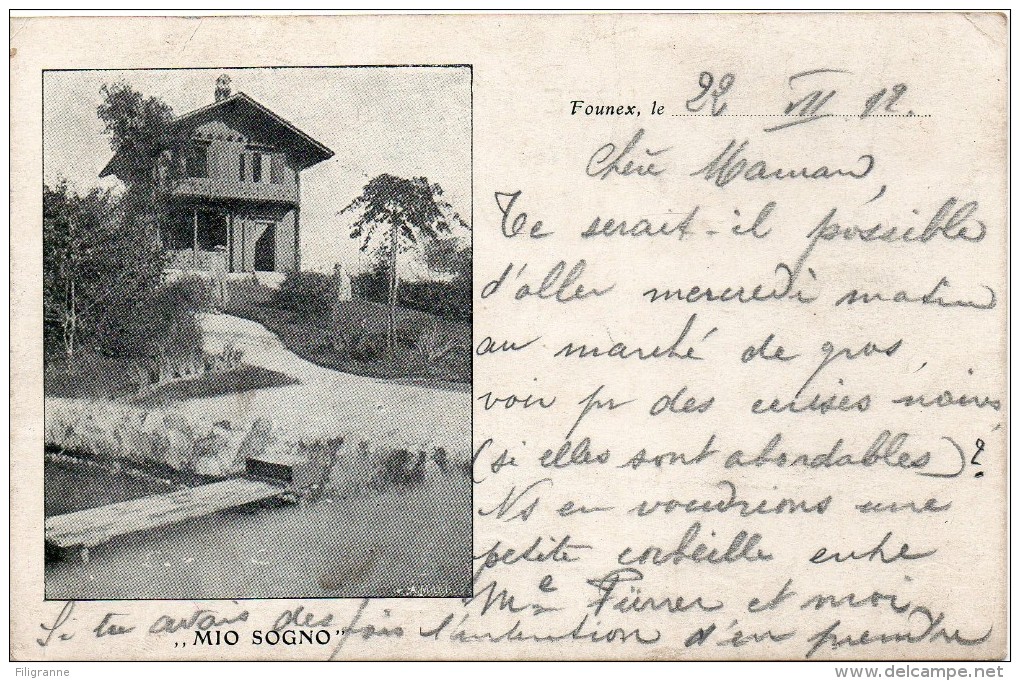 Founex, le 22 VI 12.
Chère Maman,
Te serait-il possible
d'aller mercredi matin
au marché de gros,
voir pr des cerises noires,
(si elles sont abordables)?
Ns en voudrions une
petite corbeille entre
Me Fürrer et moi
Si tu avais des fois l'intention d'en prendre
„MIO SOGNO"
Filigranne
www.delcampe.net